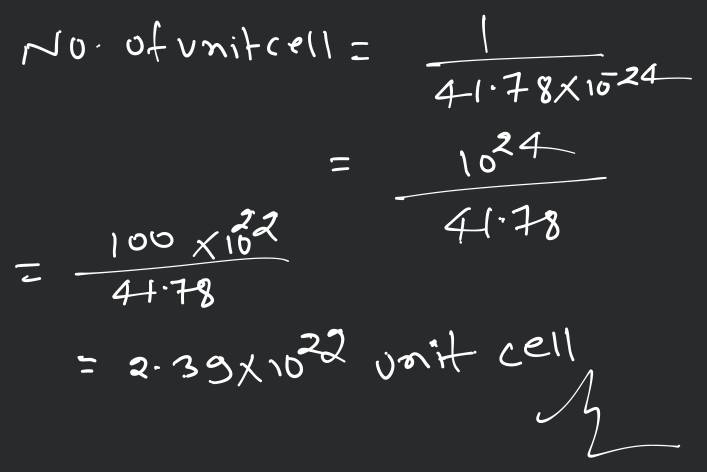 No. of unit cell = 1 / 41.78×10^-24
= 10^24 / 41.78
= 100 ×10^22 / 41.78
= 2.39×10^22 unit cell